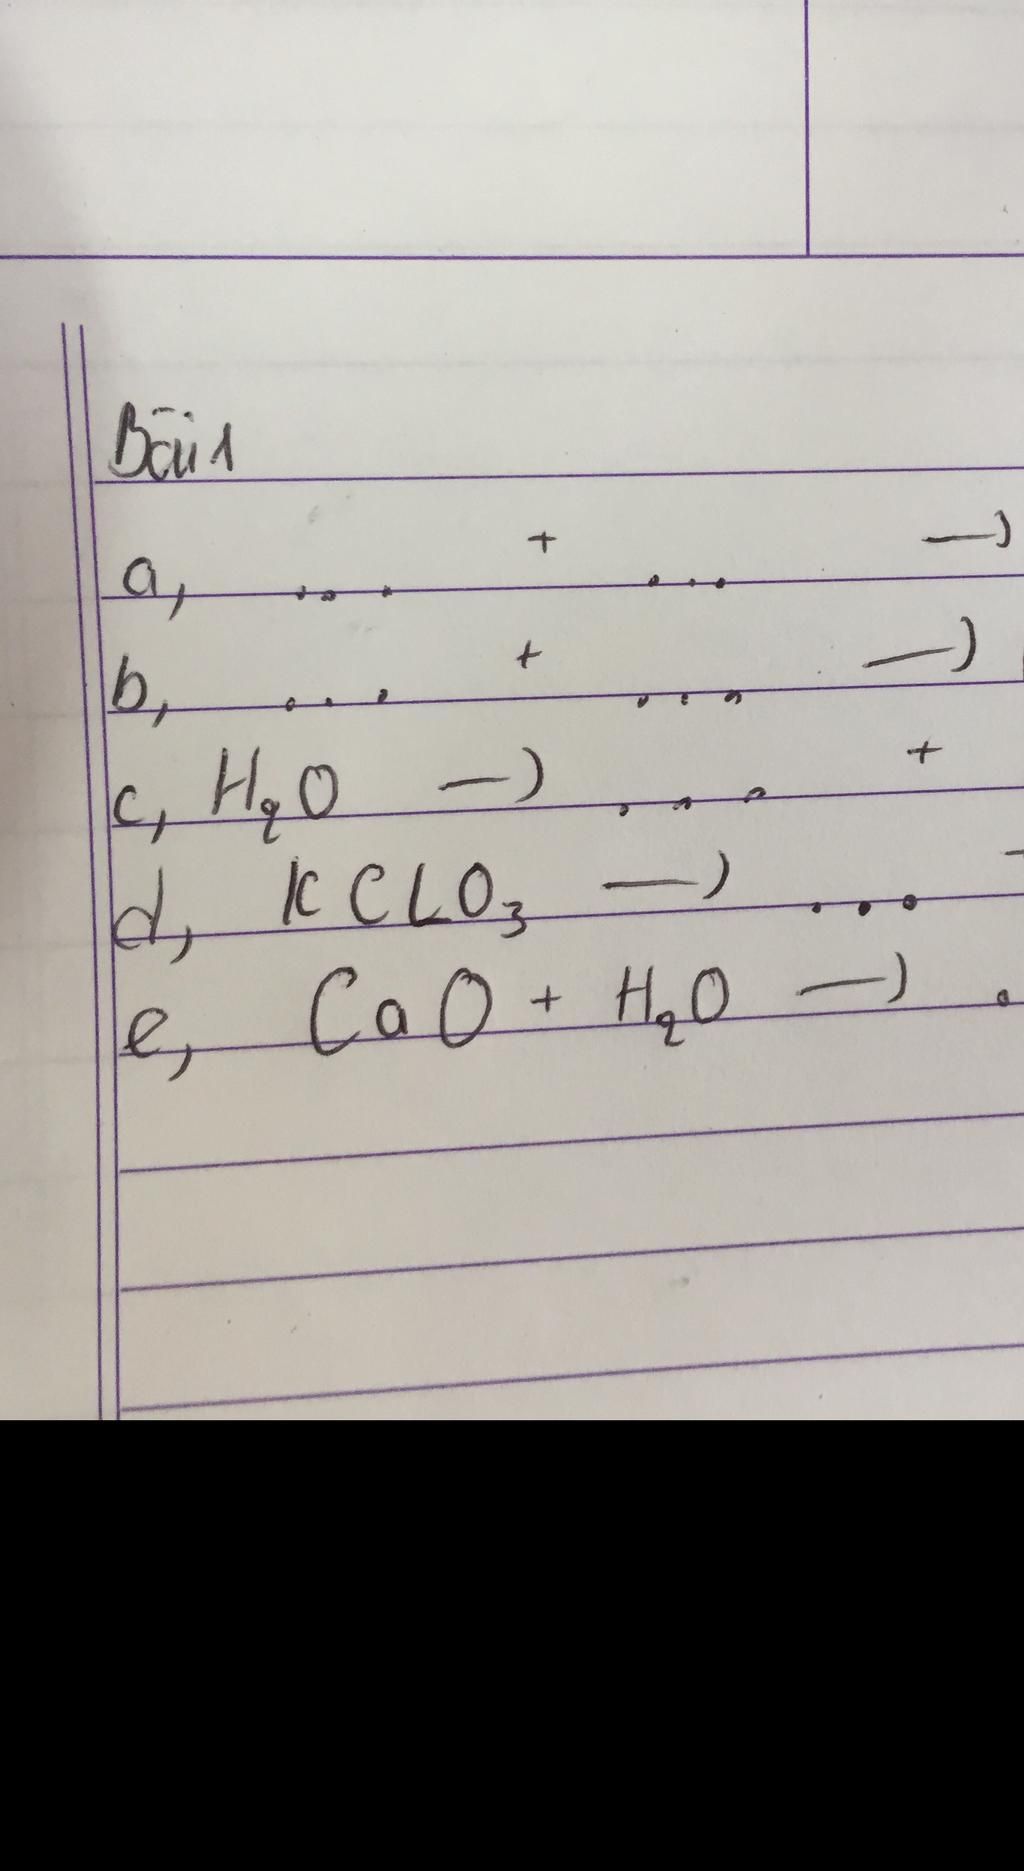 Bài 1
a, ... + ... →
b, ... + ... →
c, H₂O → ... +
d, KCLO₃ → ...
e, CaO + H₂O → .